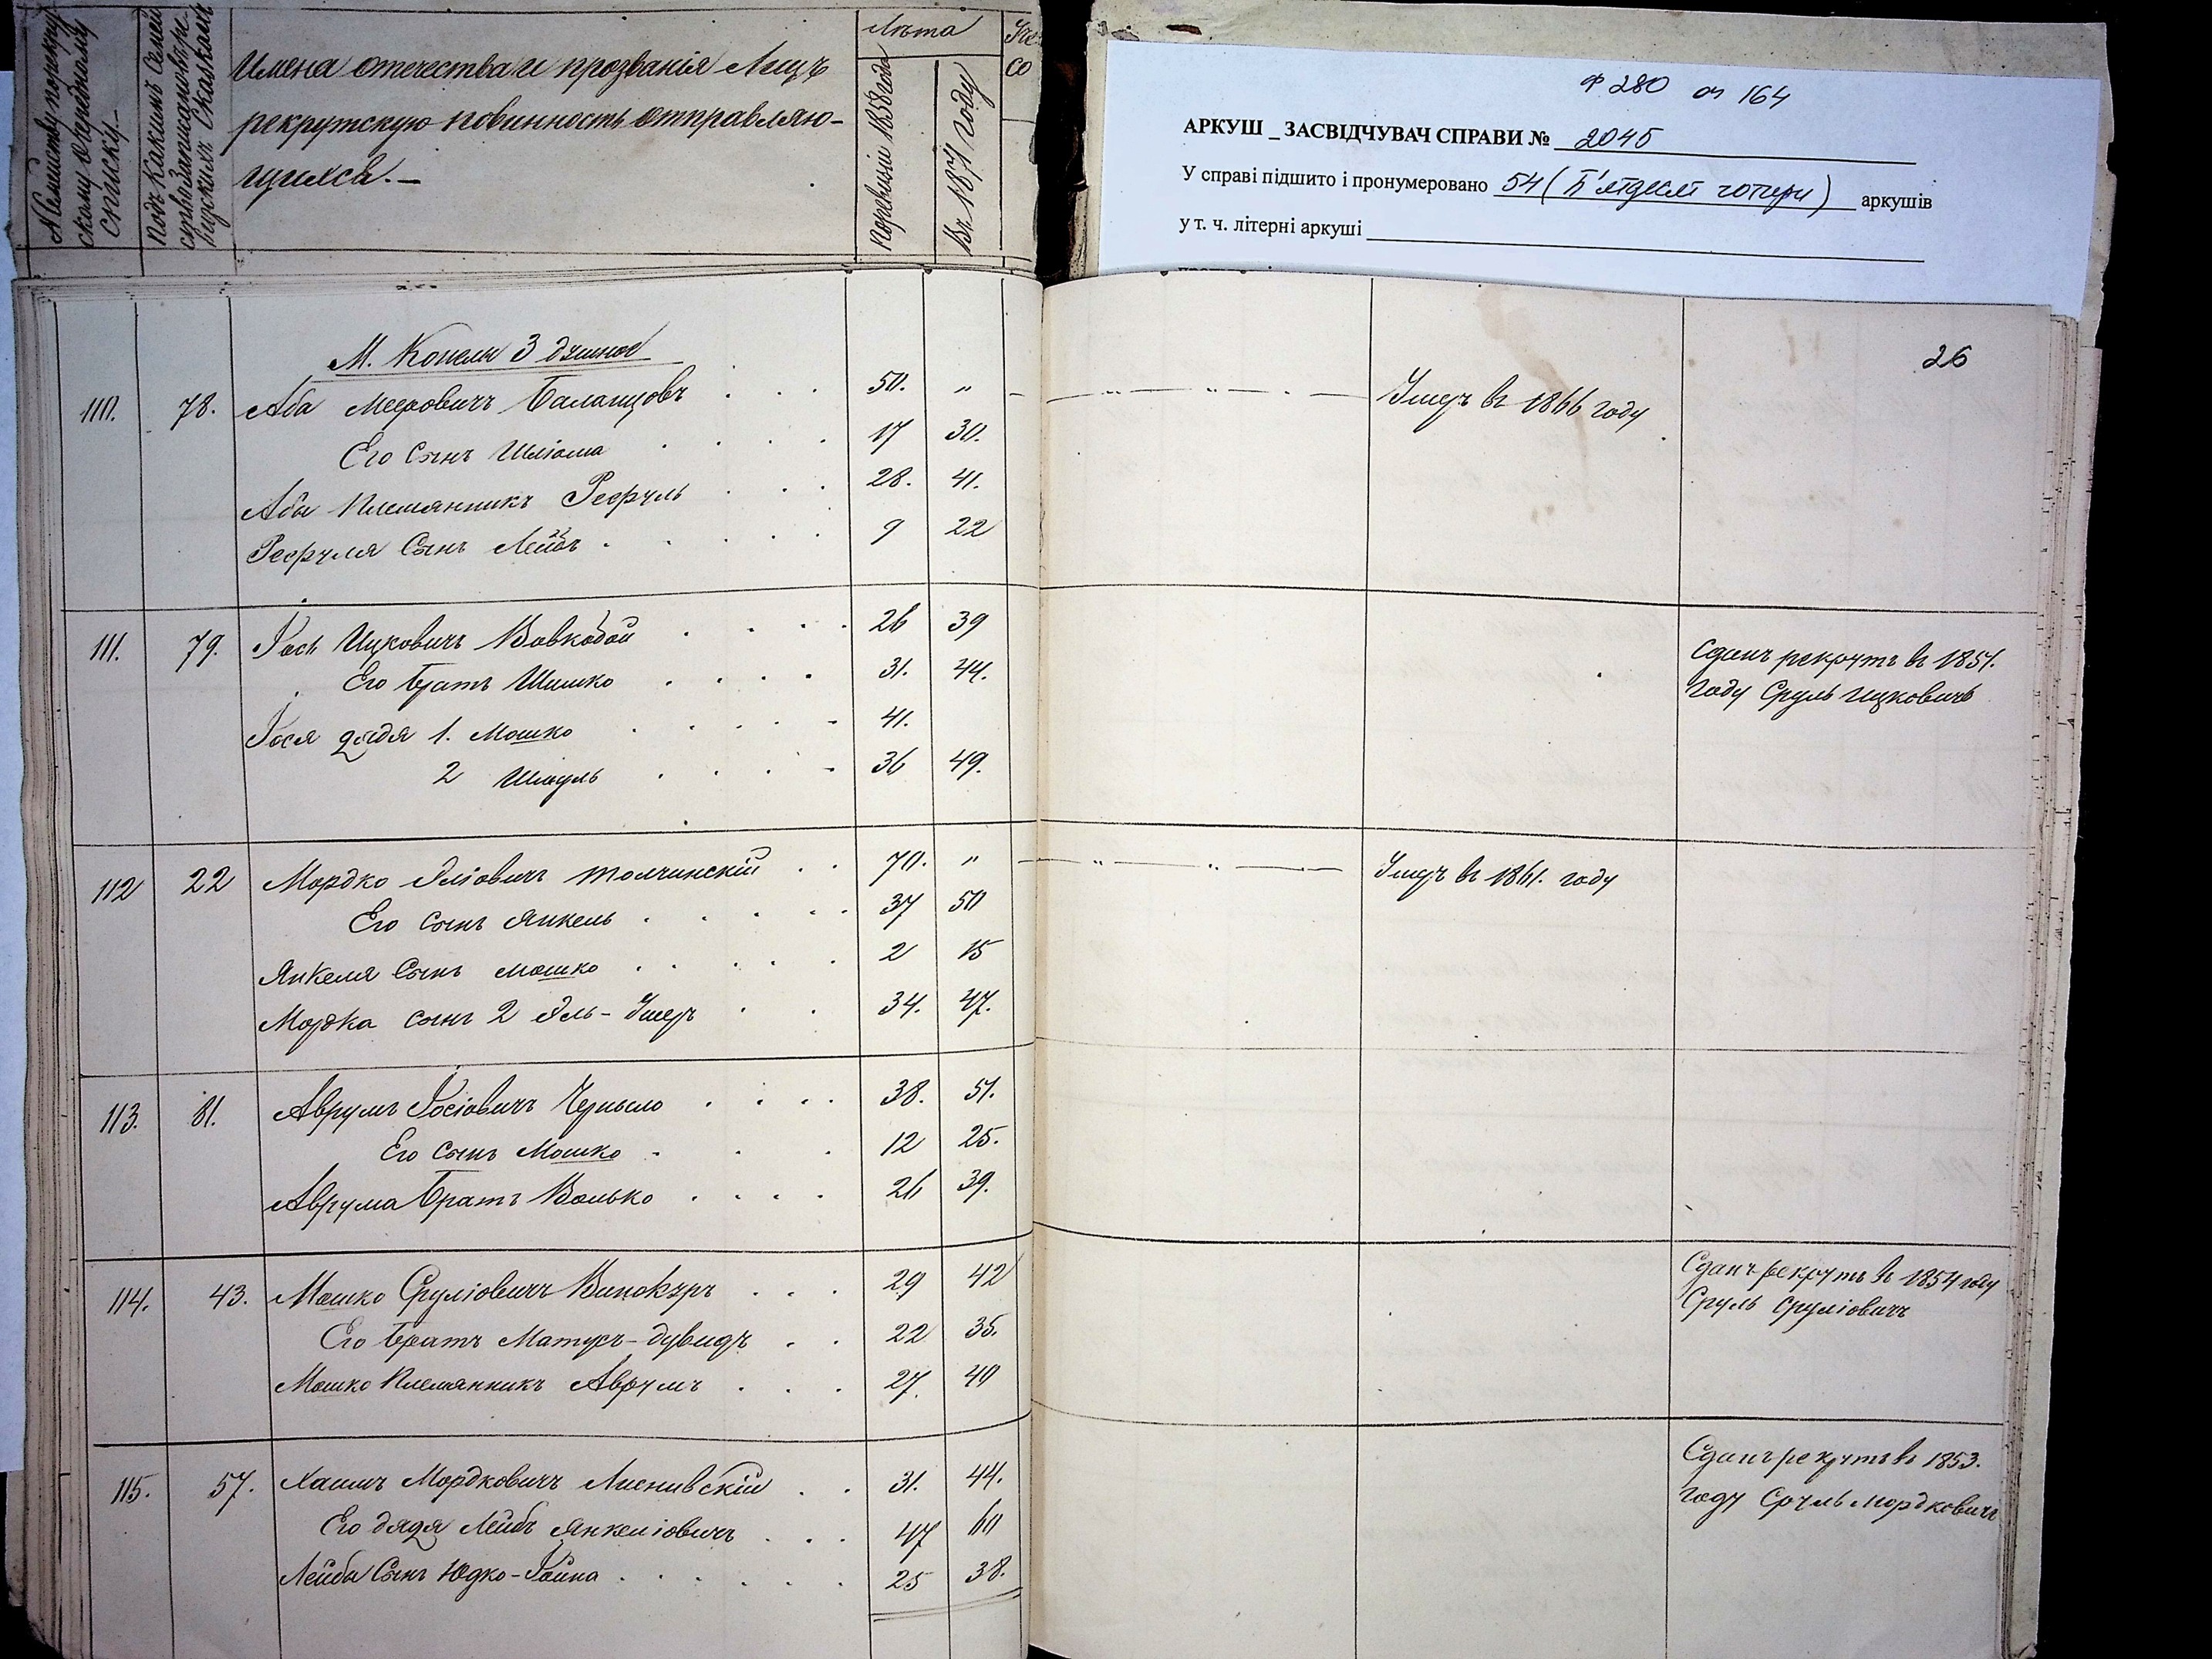 № Семейству по рекрутскому очередному списку.
Подъ какимъ
Имена отечества и прозванія Лицъ
рекрутскую повинность отправляю-
щихся. –
Лѣта
По ревизіи 1858 года
Въ 1871 году
Ф 280 оп 164
АРКУШ _ ЗАСВІДЧУВАЧ СПРАВИ № 2045
У справі підшито і пронумеровано 54 (П'ятдесят чотири) аркушів
у т. ч. літерні аркуші
26
М. Конелы
110. 78. Аба Мееровичъ Балагцовъ 50. " Умеръ въ 1866 году
Его Сынъ Шліома 17 30.
Абы Племянникъ Рефуль 28. 41.
Рефуля Сынъ Лейбъ 9 22
111. 79. Іось Ицковичъ Вовкобой 26 39 Сданъ рекрутъ въ 1851.
Его Братъ Шимко 31. 44. году Сруль Ицковичъ
Іося дядя 1. Мошко 41.
2 Шмуль 36 49.
112 22 Мордко Эліовичъ Толчинскій 70. " Умеръ въ 1861. году
Его Сынъ Янкель 37 50
Янкеля Сынъ Мошко 2 15
Мордка сынъ 2 Эль-Умеръ 34. 47.
113. 81. Аврумъ Іосіовичъ Черныло 38. 51.
Его Сынъ Мошко 12 25.
Аврума Братъ Волько 26 39.
114. 43. Мошко Сруліовичъ Винокуръ 29 42 Сданъ рекрутъ въ 1854 году
Сруль Сруліовичъ
Его Братъ Матусъ-Дувидъ 22 35.
Мошко Племянникъ Аврумъ 27. 40
115. 57. Хаимъ Мордковичъ Лиснивскій 31. 44. Сданъ рекрутъ въ 1853.
году Сруль Мордковичъ
Его дядя Лейбъ Янкеліовичъ 47 60
Лейбы Сынъ Юдко-Іойна 25 38.